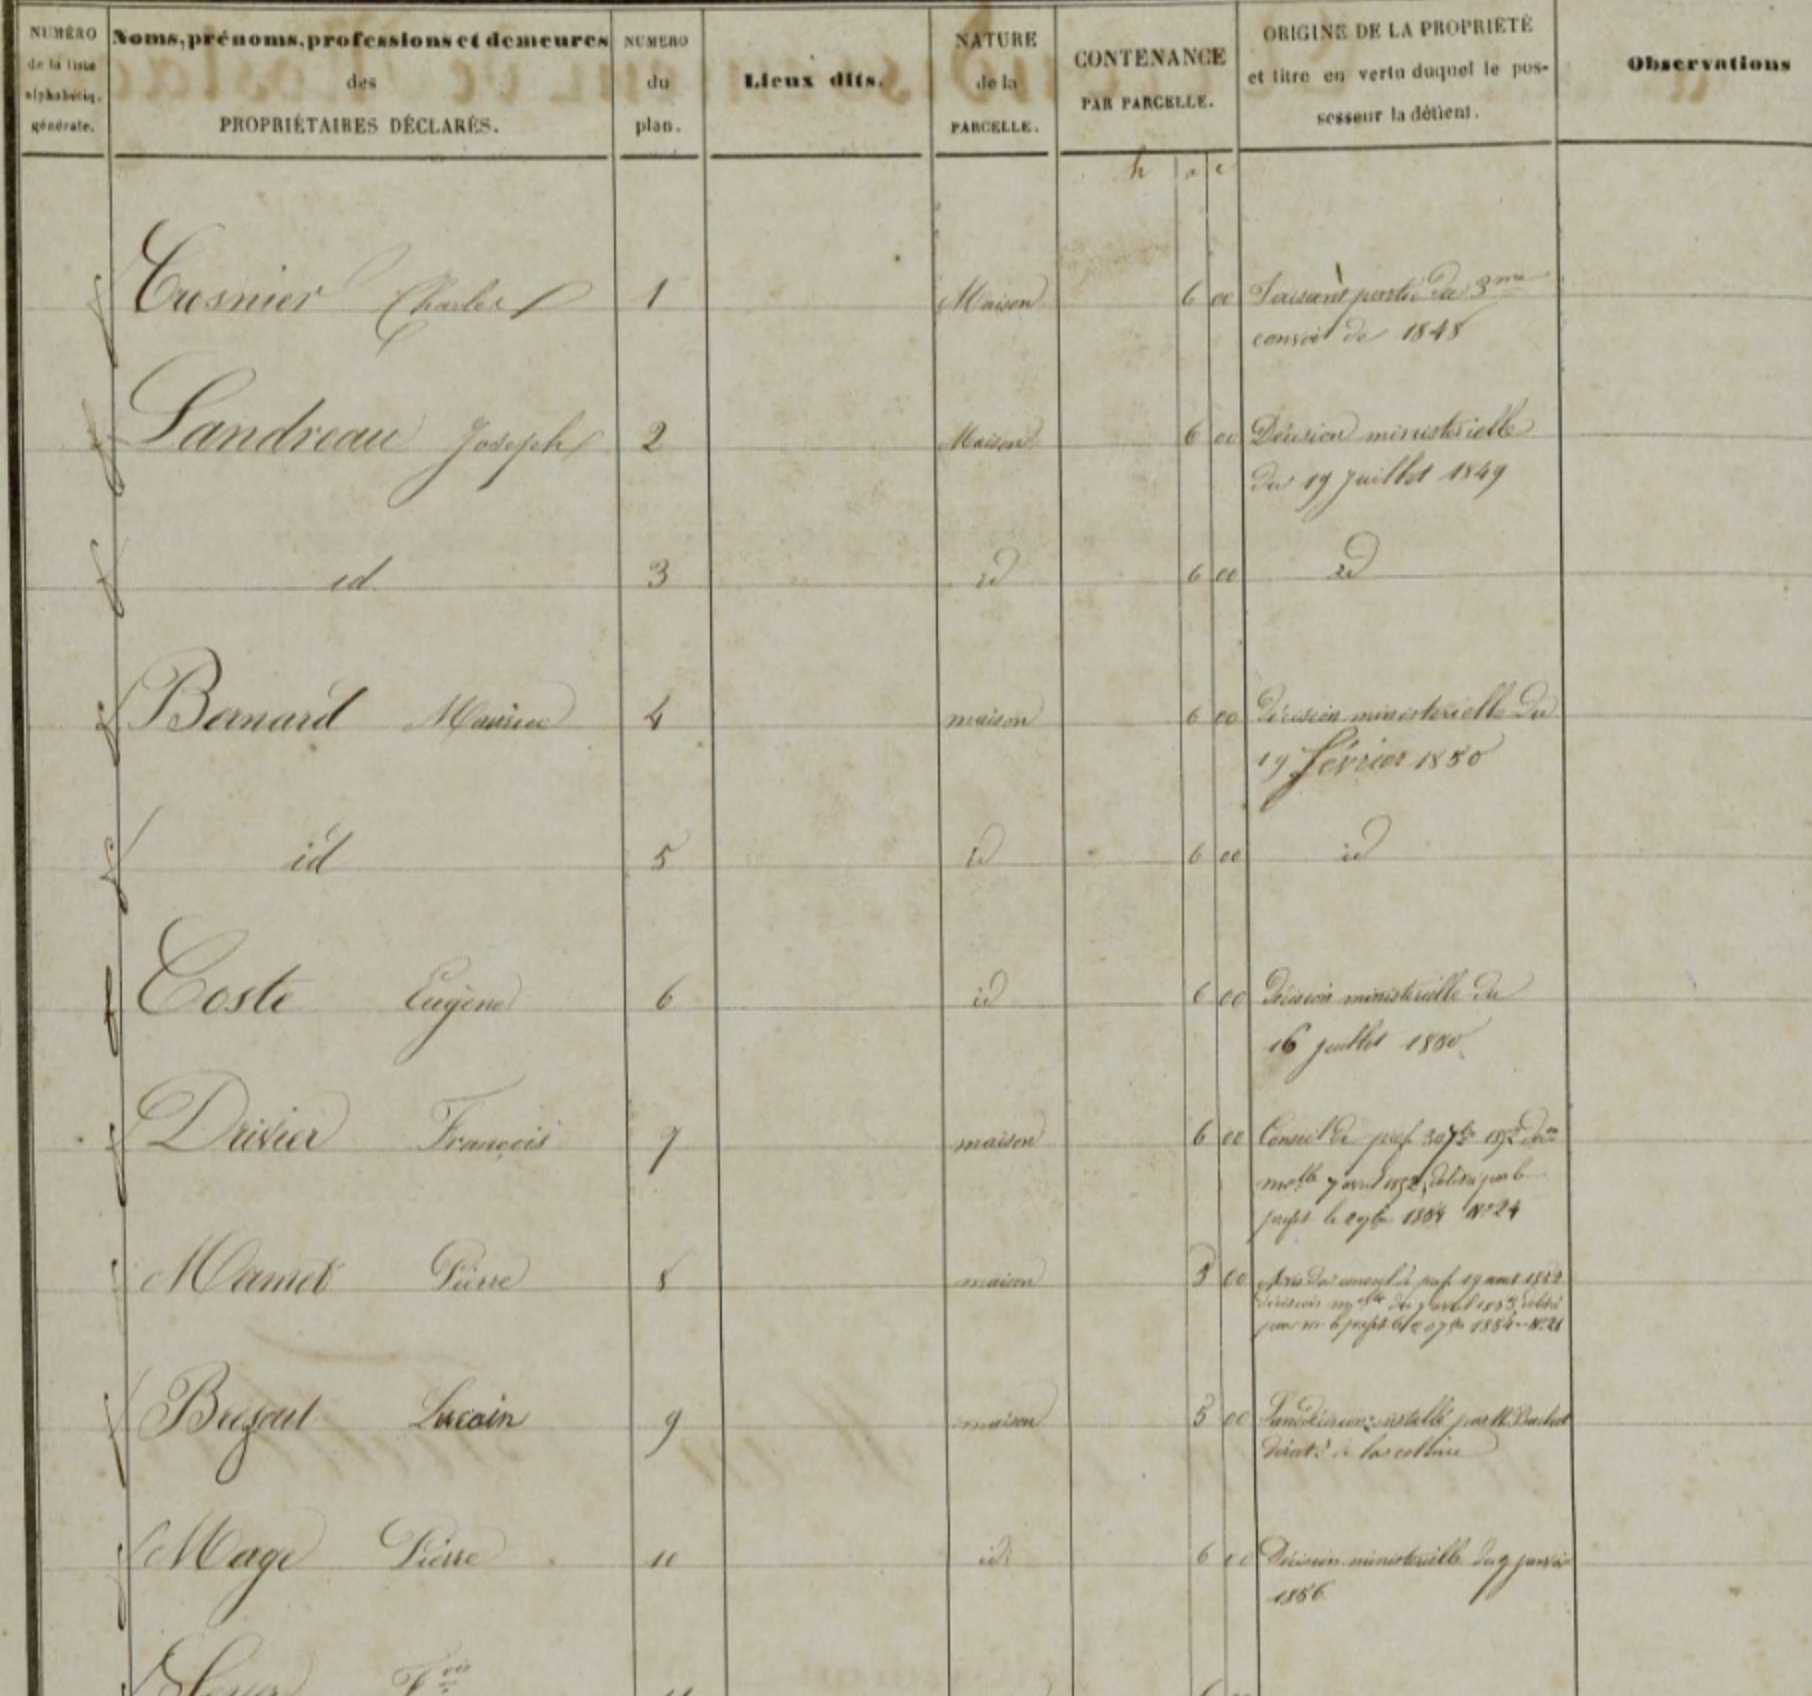 NUMÉRO de la liste alphabétiq. générale.
Noms, prénoms, professions et demeures des PROPRIÉTAIRES DÉCLARÉS.
NUMÉRO du plan.
Lieux dits.
NATURE de la PARCELLE.
CONTENANCE PAR PARCELLE.
ORIGINE DE LA PROPRIÉTÉ et titre en vertu duquel le possesseur la détient.
Observations
h a c
Charles 1 Maison 6 00 Faisant partie du 3me
convoi de 1848
Landreau Joseph 2 Maison 6 00 Décision ministérielle
du 19 Juillet 1849
id 3 id 6 00 id
Bernard Maurice 4 maison 6 00 décision ministérielle du
19 février 1850
id 5 id 6 00 id
Coste Eugène 6 id 6 00 décision ministérielle du
16 juillet 1850
François 7 maison 6 00 Conseil de préf.
7 avril 1852
préfet le 1854 No 24
Mamet Pierre 8 maison 5 00 Avis du conseil de préf. 19 aout
décision
préfet 1854
Lucain 9 maison 5 00 installé par M.
la colline
Mage Pierre 10 id 6 00 Décision ministérielle du 9 janvier
1856